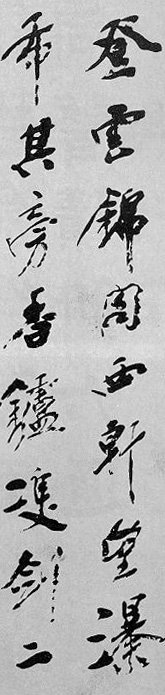 登雲錦閣西軒望瀑
布其旁香鑪雙劍二